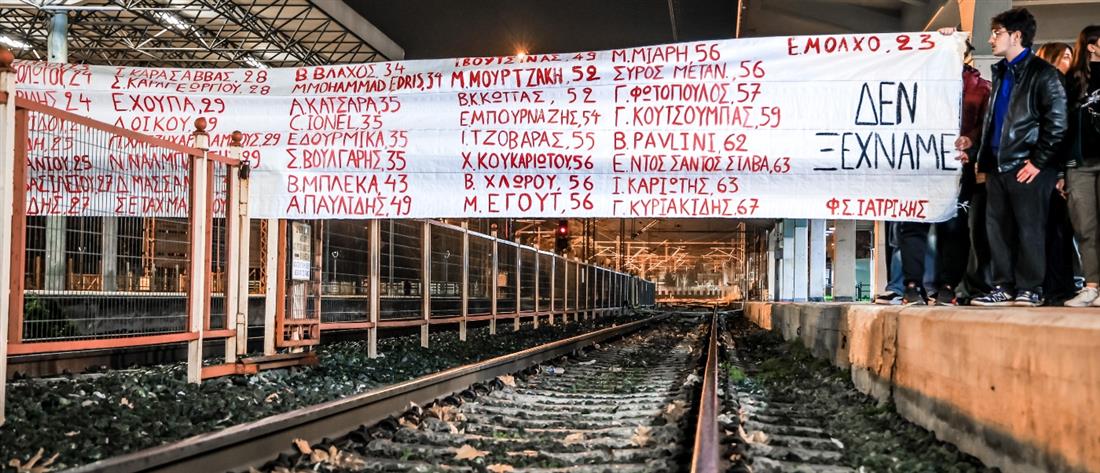 ΖΟΛΩΤΟΥ 24
24
25
25
27
27
Σ. ΚΑΡΑΣΑΒΒΑΣ, 28
Σ. ΚΑΡΑΓΕΩΡΓΙΟΥ, 28
Ε. ΧΟΥΠΑ, 29
Δ. ΟΙΚΟΥ, 29
29
Β. ΒΛΑΧΟΣ, 34
M MOHAMMAD EDRIS, 34
Α. ΧΑΤΣΑΡΑ, 35
C. IONEL 35
Ε. ΔΟΥΡΜΙΚΑ, 35
Σ. ΒΟΥΛΓΑΡΗΣ, 35
Β. ΜΠΛΕΚΑ, 43
Α. ΠΑΥΛΙΔΗΣ, 49
ΒΟΥΤΣΙΝΑΣ, 49
Μ. ΜΟΥΡΤΖΑΚΗ, 52
Β.Κ. ΚΩΤΤΑΣ, 52
Ε. ΜΠΟΥΡΝΑΖΗΣ, 54
Ι. ΤΖΟΒΑΡΑΣ, 55
Χ. ΚΟΥΚΑΡΙΩΤΟΥ, 56
Β. ΧΛΩΡΟΥ, 56
Μ. ΕΓΟΥΤ, 56
Μ. ΜΙΑΡΗ 56
ΣΥΡΟΣ ΜΕΤΑΝ., 56
Γ. ΦΩΤΟΠΟΥΛΟΣ, 57
Γ. ΚΟΥΤΣΟΥΜΠΑΣ, 59
Β. PAVLINI, 62
Ε. ΝΤΟΣ ΣΑΝΤΟΣ ΣΙΛΒΑ, 63
Ι. ΚΑΡΙΩΤΗΣ, 63
Γ. ΚΥΡΙΑΚΙΔΗΣ, 67
Ε. ΜΟΛΧΟ, 23
ΔΕΝ
ΞΕΧΝΑΜΕ
Φ.Σ. ΙΑΤΡΙΚΗΣ